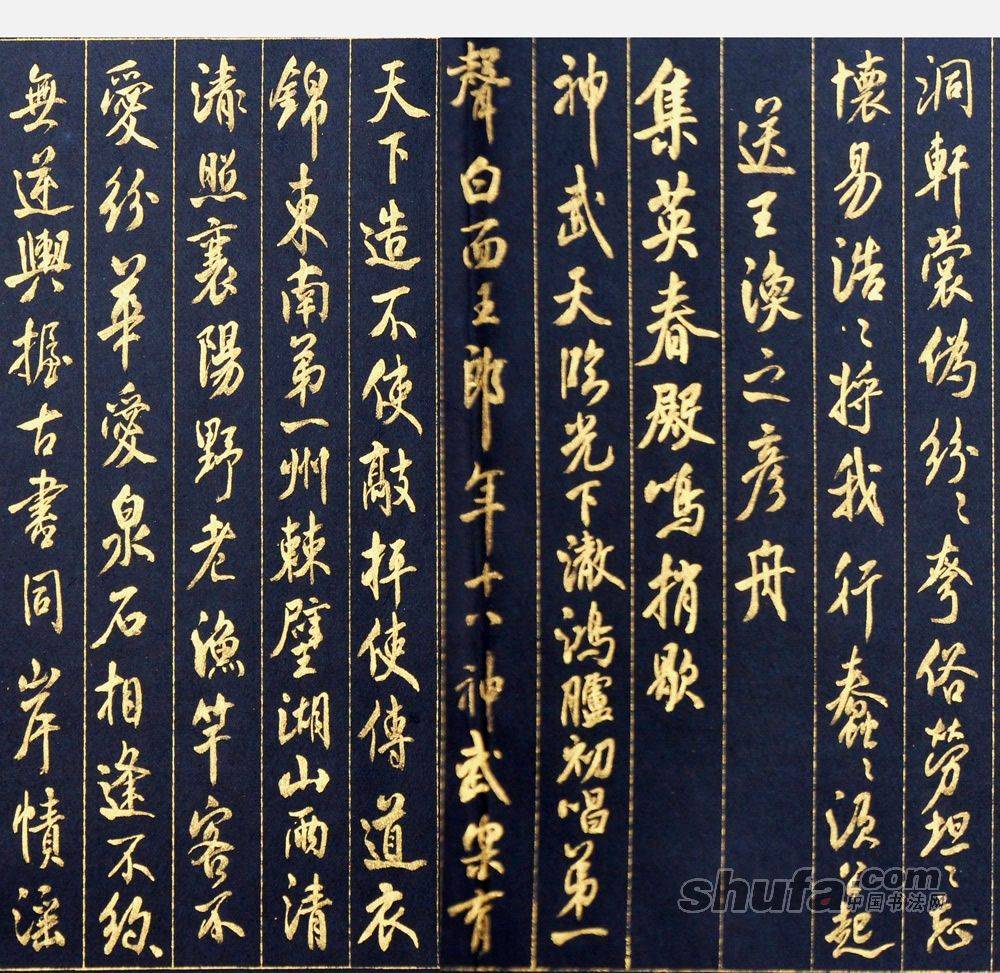 洞軒裳偽紛〻夸俗勞坦〻忘
懷易浩〻將我行蠢〻須公起
送王渙之彥舟
集英春殿鳴捎歇
神武天臨光下澈鴻臚初唱第一
聲白面王郎年十八神武樂育
天下造不使敲抨使傳道衣
錦東南第一州棘璧湖山兩清
清照襄陽野老漁竿客不
愛紛華愛泉石相逢不約
無逆輿握古書同岸幘淫
shufa.com
中国书法网